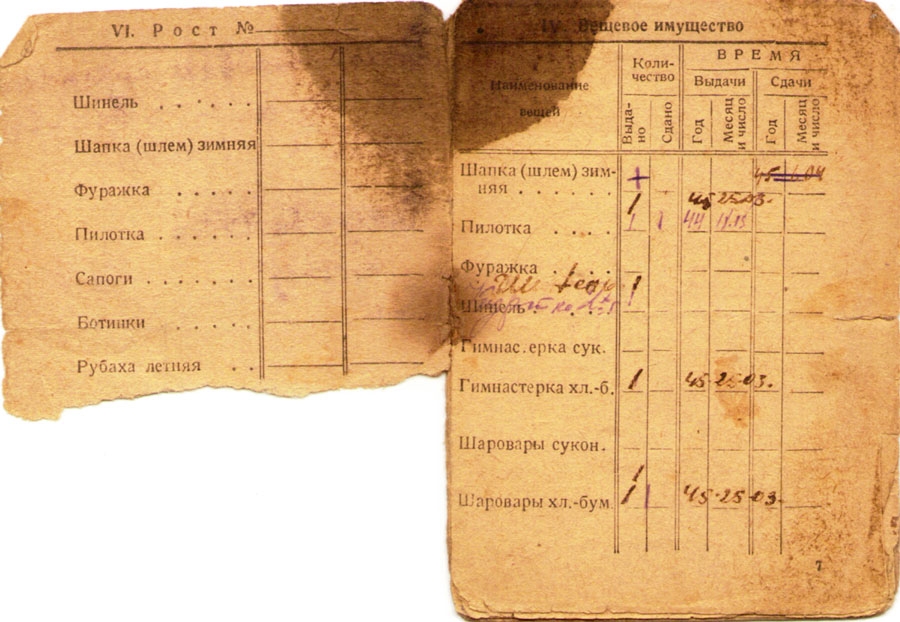 VI. Рост №
Шинель . . . . . .
Шапка (шлем) зимняя
Фуражка . . . . .
Пилотка . . . . .
Сапоги . . . . .
Ботинки . . . . .
Рубаха летняя . .
IV Вещевое имущество
Наименование вещей
Количество
ВРЕМЯ
Выдачи
Сдачи
Выдано
Сдано
Год
Месяц и число
Год
Месяц и число
Шапка (шлем) зим-
няя . . . . . .
1 45 25-03.
Пилотка . . . .
1 1 44
Фуражка . . . .
Шинель
1
Гимнас.ерка сук.
Гимнастерка хл.-б. 1 45-25-03.
Шаровары сукон.
1
Шаровары хл.-бум 1 45-25-03.
7